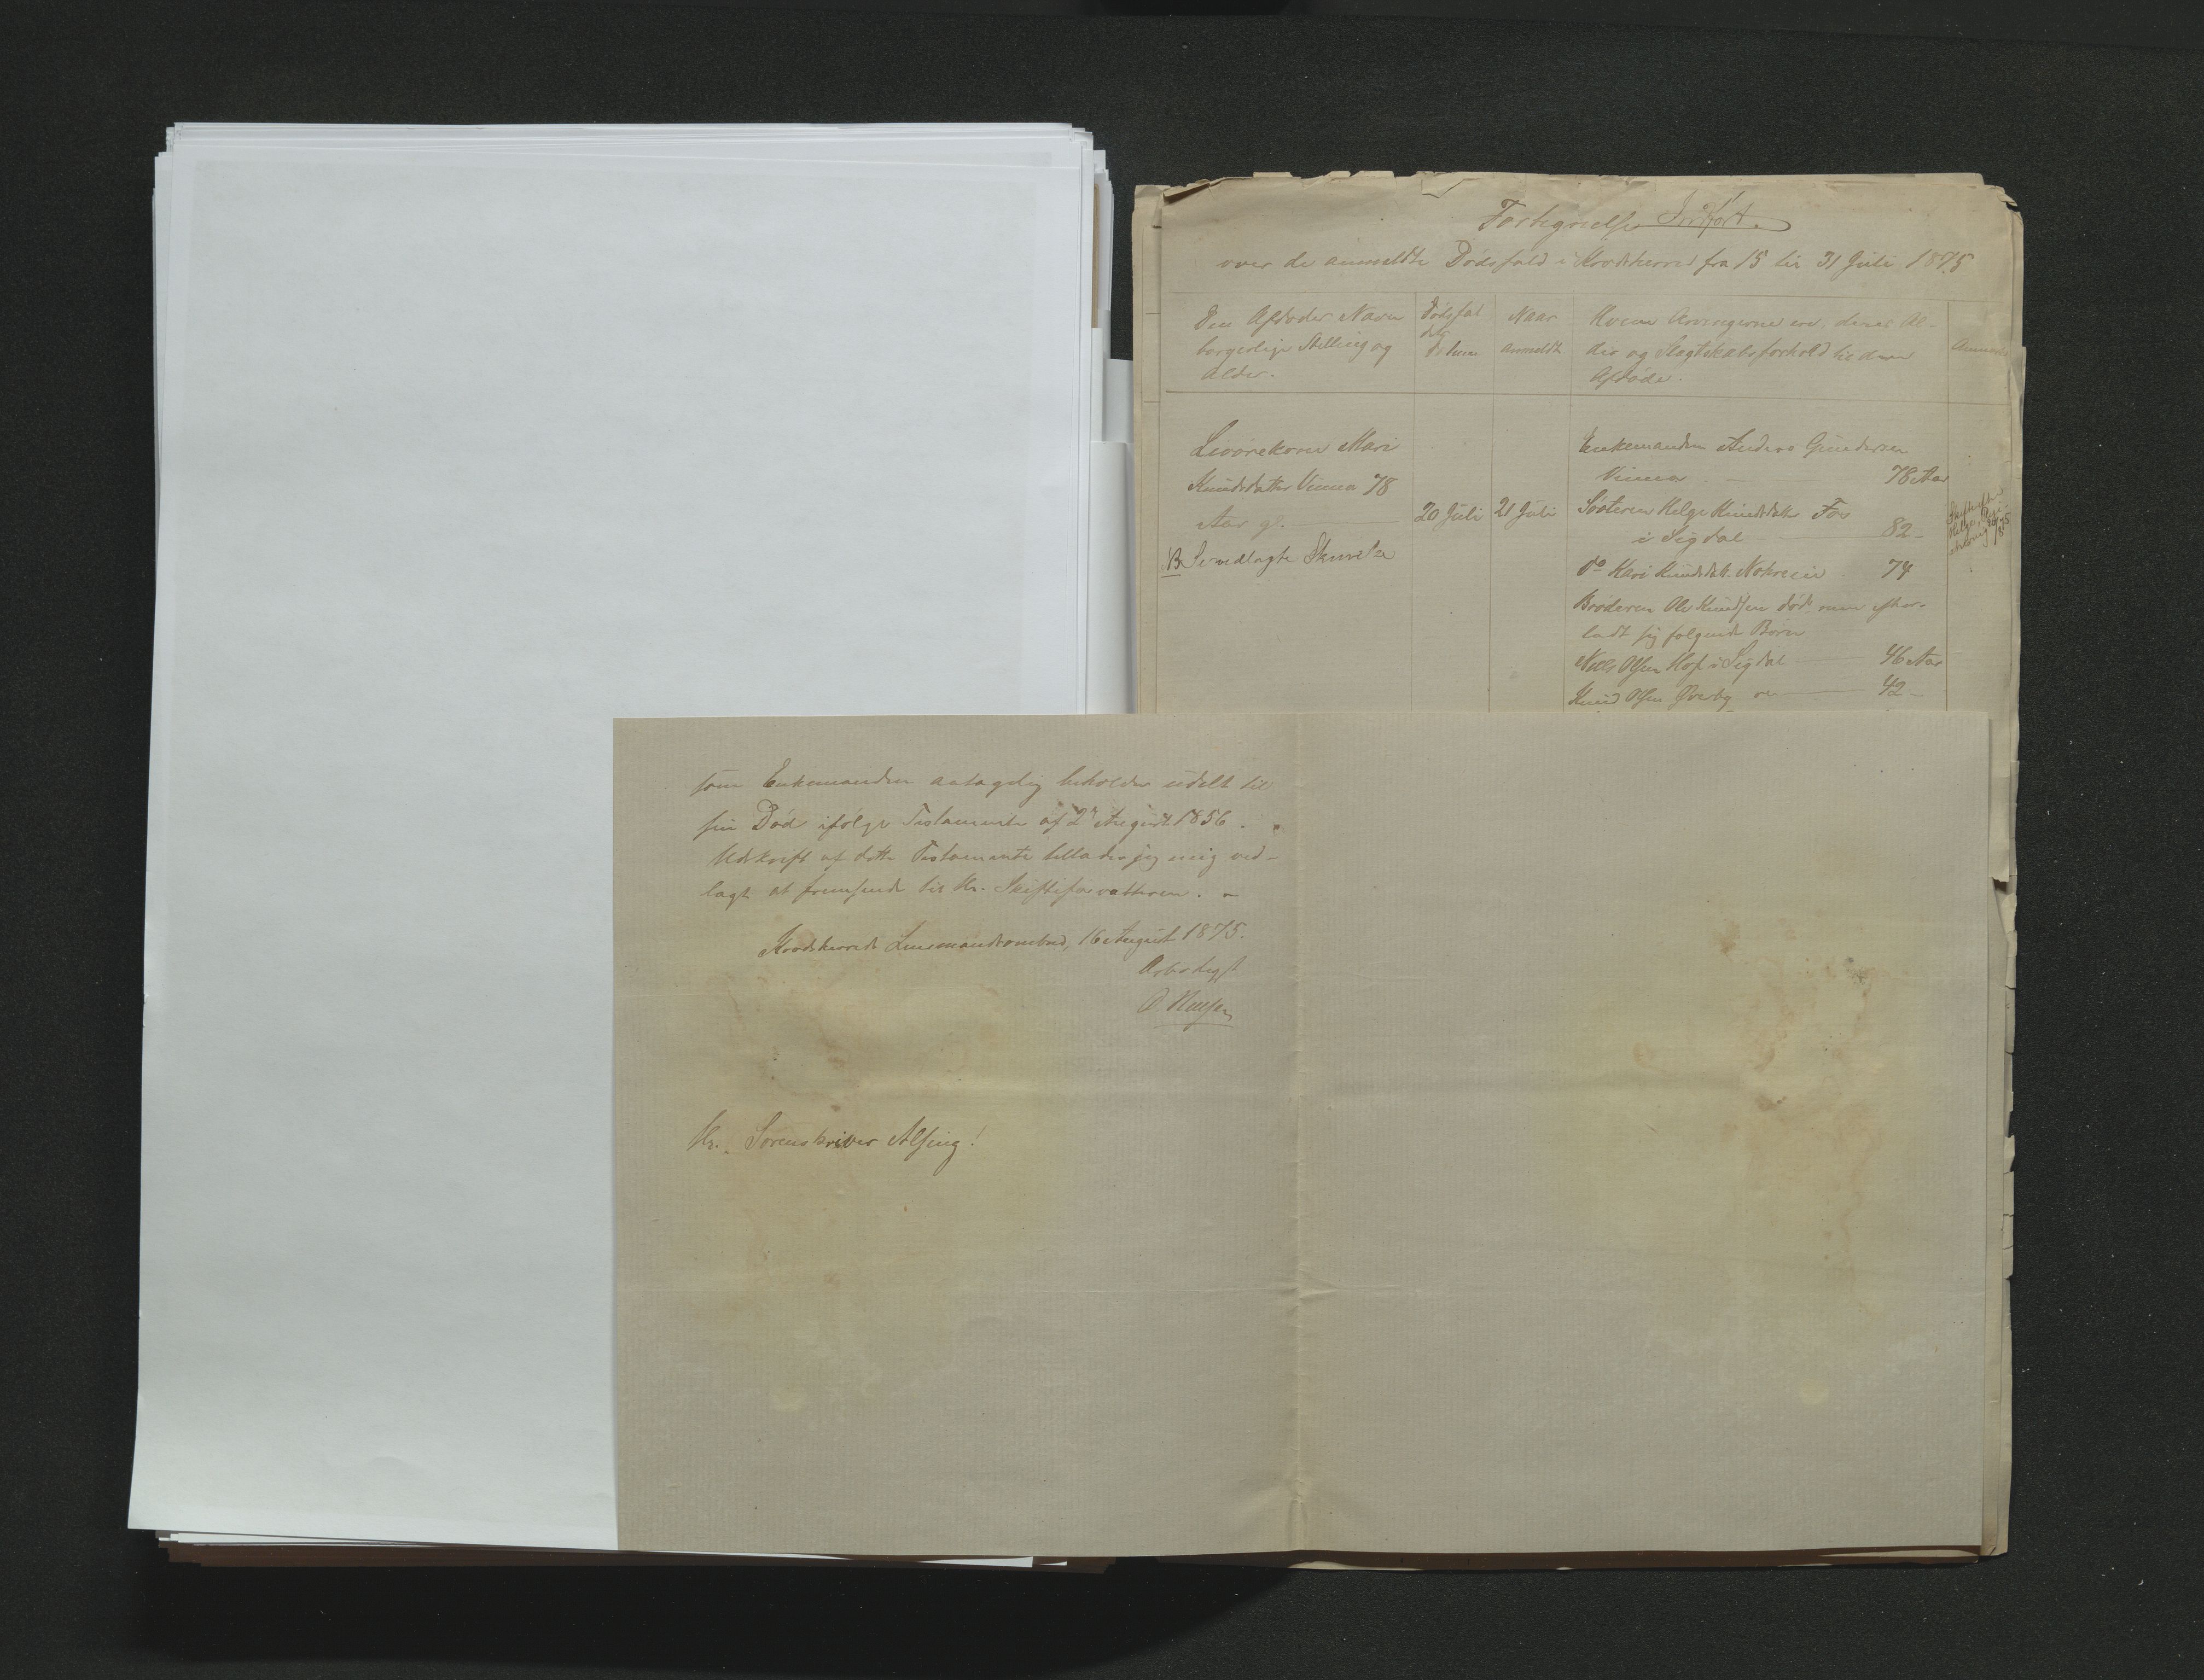 Fortegnelse Indført.
over de anmeldte Dødsfald i Krødsherred fra 15 til 31 Juli 1875
Den Afdødes Navn
borgerlige Stilling og
Alder.
Dødsfal
dets
Datum
Naar
anmeldt
Hvem Arvingerne ere, deres Al-
der og Slægtskabsforhold til den
Afdøde.
Livørekone Mari
Knudsdatter Vinna 78
Aar gl.
NB Se vedlagte Skrivelse
20 Juli
21 Juli
Enkemanden Anders Gundersen
Vinna 78 Aar
Søsteren Helge Knudsdatter Fos
i Sigdal 82 -
do Kari Knudsdatt. 74
Broderen Ole Knudsen død men efter-
ladt sig følgende Børn
Nills Olsen Hof i Sigdal 46 Aar
Knud Olsen 42 -
som Enkemanden antagelig beholder udelt til
sin Død ifølge Testamente af 2 August 1856.
Udskrift af dette Testamente tillader jeg mig ved-
lagt at fremsende til Hr. Skifteforvalteren. -
Krødsherreds Lensmandsombud, 16 August 1875.
Ærbødigst
Hr. Sorenskriver Alsing!